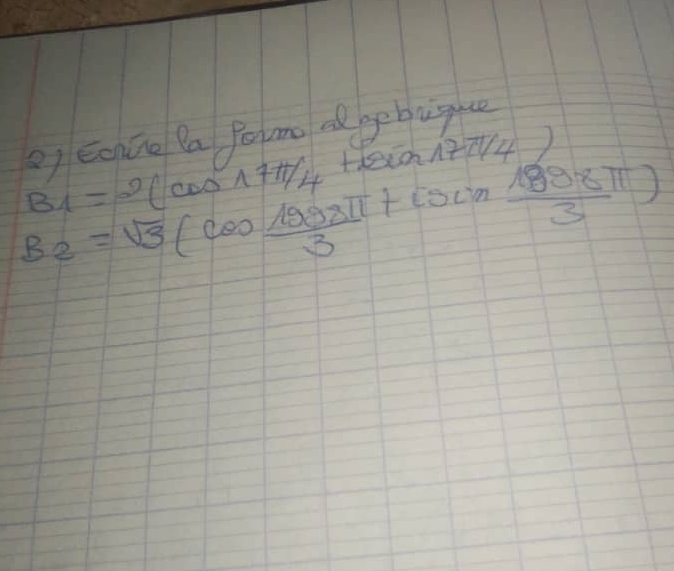 2) Ecrire la form algebrique
B1 = 2(cos 17π/4 + isin 17π/4)
B2 = √3 (cos 1998π/3 + isin 1998π/3)